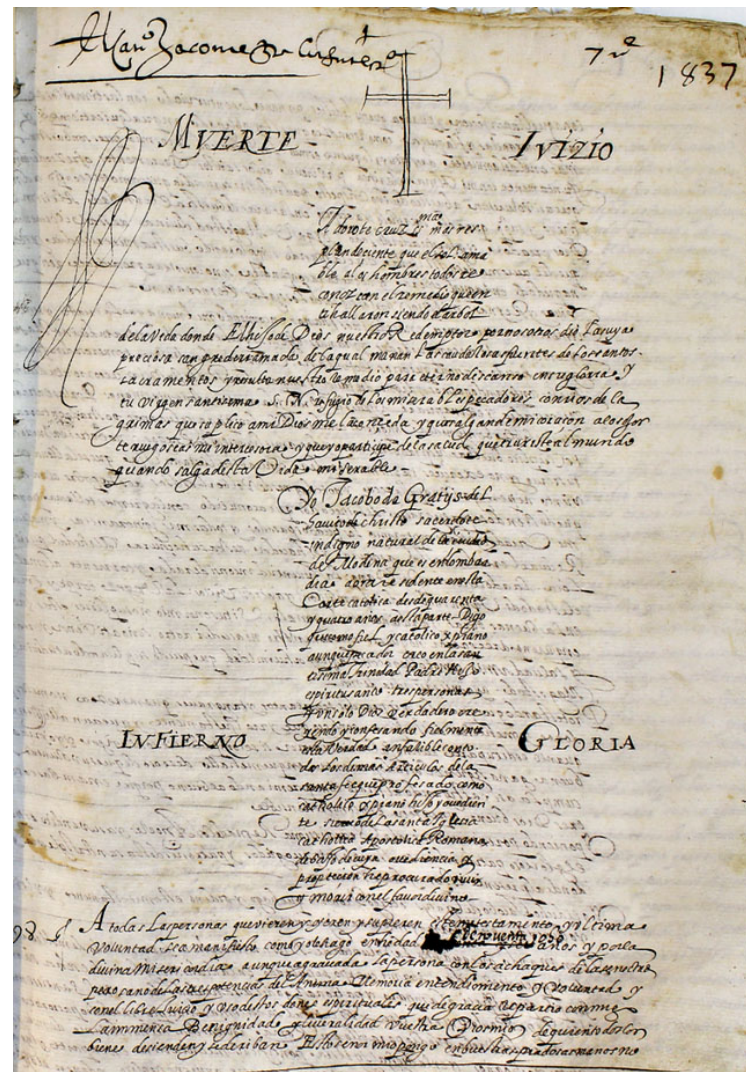 7
1837
MVERTE
IVIZIO
Adorote cruz mas res
plandeciente que el sol ama
ble a los hombres todos te
conozcan el remedio que en
ti hallaron siendo el arbol
de la Vida donde El hijo de Dios nuestro Redemptor por nosotros dio la suya
preciosa sangre derramada de la qual manan las caudalosas fuentes de los santos
sacramentos y resulta nuestro remedio para eterno descanso en su gloria y
tu virgen santisima refugio de los miserables pecadores con rios de la
grimas que suplico a mi Dios me las conzeda y que salgan de mi corazon a los ojos
te ruego seas mi intercesora y que yo participe de la salud que truxiste al mundo
quando salga desta Vida miserable
Yo Jacobo de Gratijs del
havito de christo sacerdote
indigno natural de la ciudad
de Modena que es en lombar
dia aora residente en esta
Corte catolica desde quarenta
y quatro años a esta parte Digo
que como fiel y catolico xpiano
aunque pecador creo en la san
tisima Trinidad Padre Hijo
espiritu santo tres personas
y un solo Dios verdadero cre
yendo y confesando fielmente
esta Verdad infalible con to
dos los demas articulos de la
santa fee que he profesado como
catholico xpiano hijo y ovedien
te siervo de La santa Iglesia
catholica Apostolica Romana
debajo de cuya ovediencia y
proteccion he procurado vivir
y morir con el favor divino
INFIERNO
GLORIA
A todas Las personas que vieren y oyeren y supieren este mi testamento y ultima
Voluntad sea manifiesto como yo le hago en hedad años y por la
divina Misericordia aunque agravada la persona con los achaques de la senectud
pero sano de las tres potencias del Anima Memoria entendimiento y Voluntad y
con el libre Juicio y Uso destos dones espirituales que de gracia repartio conmigo
La inmensa Benignidad y liveralidad Vuestra O Dios mio de quien todos los
bienes descienden y se deriban Esto señor mio pongo en vuestras sagradas manos